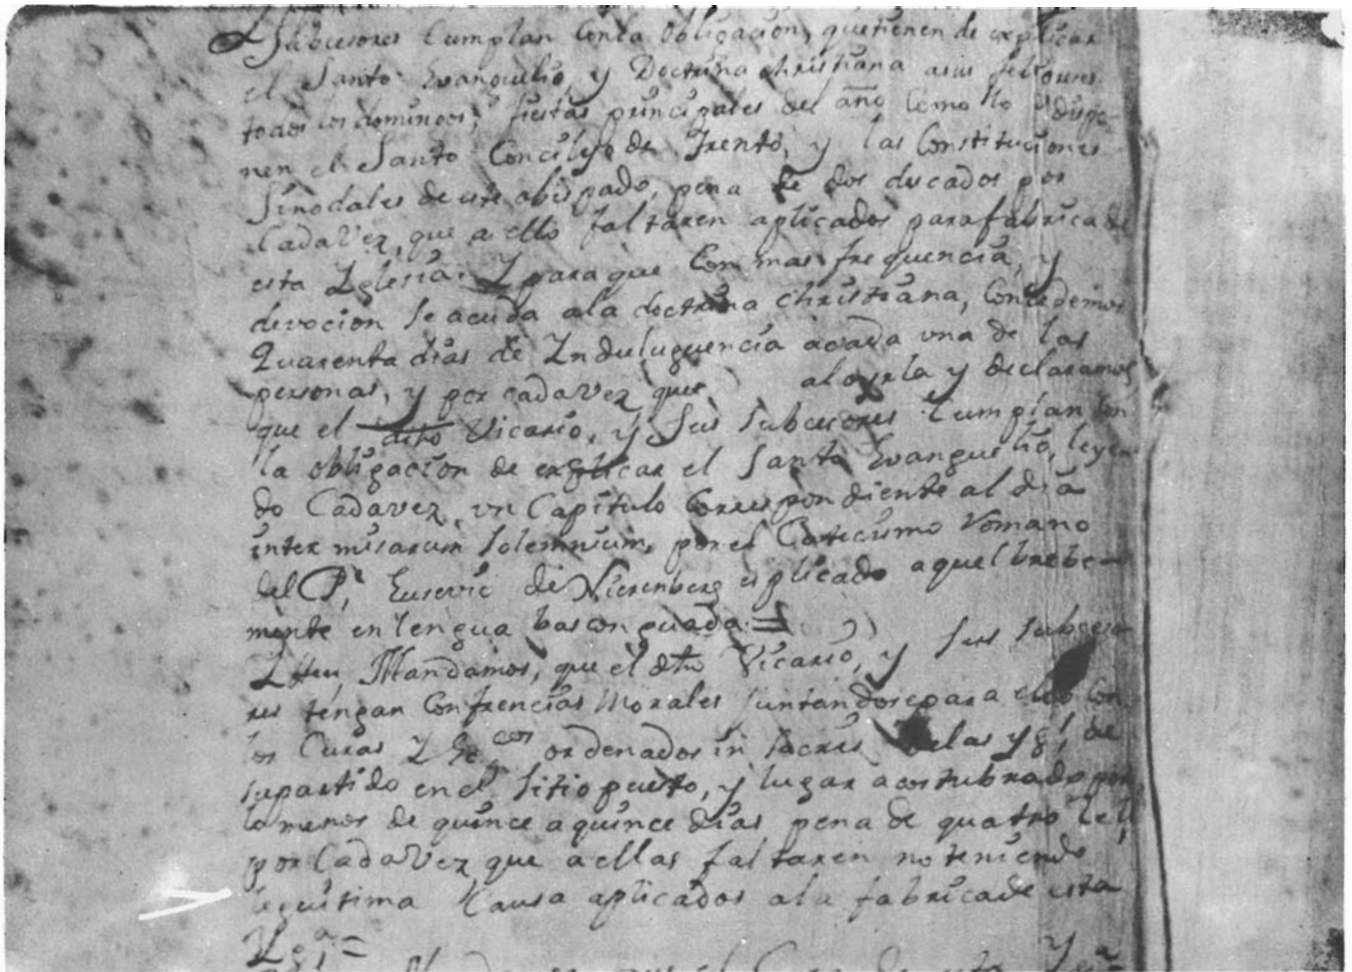 Subcesores Cumplan Con la Obligacion, que tienen de explicar
el Santo Evanguelio, y Doctrina christiana a sus feligreses
todos los domingos, fiestas principales del año Como lo dispo-
nen el Santo Concilyo de Trento, y las Constituciones
Sinodales de este obispado, pena de dos ducados por
Cada Vez, que a ello faltaren aplicados para fabrica de
esta Iglesia. Y para que Con mas frequencia, y
devocion se acuda a la doctrina christiana, Concedemos
Quarenta dias de Induluguencia a cada vna de las
personas, y por cada vez que al oyrla y declaramos
que el dito Vicario, y Sus Subcesores Cumplan Con
la obligacion de explicar el Santo Evanguelio, leyen
do Cada vez, vn Capitulo Correspondiente al dia
inter misarum Solemnium, por el Catecismo Romano
del P.e Eusevio de Nieremberg esplicado aquel brebe-
mente en lengua bascongada =
Itten Mandamos, que el dto Vicario, y sus subceso
res tengan Confrencias Morales Juntandose para ello Con
los Curas Y Be.cos ordenados in sacris de las yg.s de
su partido en el Sitio puesto, y lugar acostubrado por
lo menos de quince a quince dias pena de quatro
por Cada Vez que a ellas faltaren no teniendo
leguitima Causa aplicados a la fabrica de esta
Yg.a =